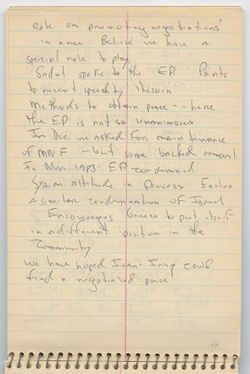 Role on promoting negotiations
in area. Believe we have a
special role to play
Sadat spoke to the EP. Points
to recent speech by Hussein
Methods to obtain peace -- here
the EP is not so unanimous
In Dec we asked for maintenance
of MNF - but some backed
In Nov. 1983 EP condemned
Syrian attitude in Process
a similar condemnation of Israel
Encourages Greece to put itself
in different position in the
Community
we have hoped Iran-Iraq could
find a negotiated peace